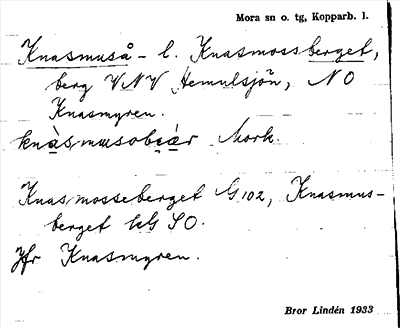 Mora sn o. tg, Kopparb. l.
Knasmuså- l. Knasmossberget,
berg VNV Hemulsjön, NO
Knasmyren.
Mork.
Knasmosseberget G 102, Knasmus-
berget SO.
Jfr Knasmyren.
Bror Lindén 1933